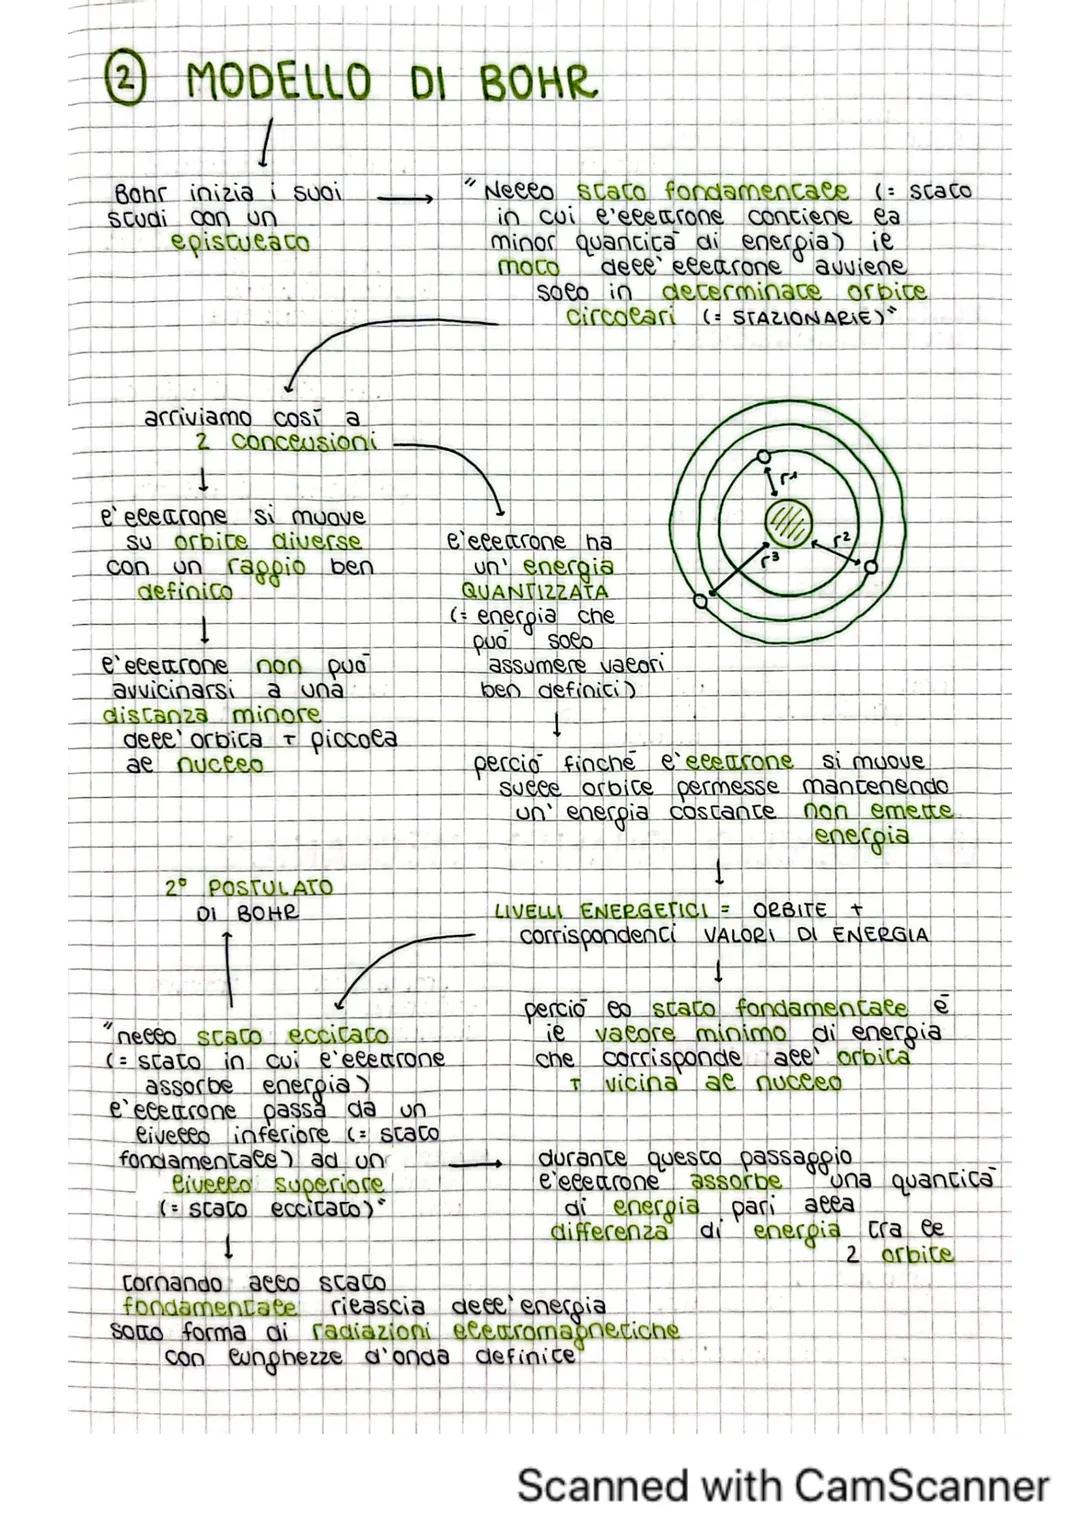 2 MODELLO DI BOHR
Bohr inizia i suoi
studi con un
epistulato
"Nello stato fondamentale (= stato
in cui l'elettrone contiene la
minor quantità di energia) il
moto dell'elettrone avviene
solo in determinate orbite
circolari (= STAZIONARIE)"
arriviamo così a
2 conclusioni
l'elettrone si muove
su orbite diverse
con un raggio ben
definito
l'elettrone non può
avvicinarsi a una
distanza minore
dell'orbita + piccola
al nucleo
l'elettrone ha
un'energia
QUANTIZZATA
(= energia che
può solo
assumere valori
ben definiti)
r1
r2
r3
perciò finché l'elettrone si muove
sulle orbite permesse mantenendo
un'energia costante non emette
energia
LIVELLI ENERGETICI = ORBITE +
corrispondenti VALORI DI ENERGIA
perciò lo stato fondamentale è
il valore minimo di energia
che corrisponde all'orbita
+ vicina al nucleo
2° POSTULATO
DI BOHR
"nello stato eccitato
(= stato in cui l'elettrone
assorbe energia)
l'elettrone passa da un
livello inferiore (= stato
fondamentale) ad un
livello superiore
(= stato eccitato)"
durante questo passaggio
l'elettrone assorbe una quantità
di energia pari alla
differenza di energia tra le
2 orbite
tornando allo stato
fondamentale rilascia dell'energia
sotto forma di radiazioni elettromagnetiche
con lunghezze d'onda definite
Scanned with CamScanner